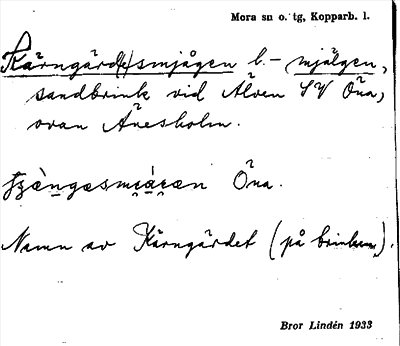 Mora sn o. tg, Kopparb. l.
Kärngärd(s)smjågen l. - mjälgen,
sandbrink vid Älven SV Öna,
ovan Ånesholm.
Öna.
Namn av Kärngärdet (på brinken).
Bror Lindén 1933